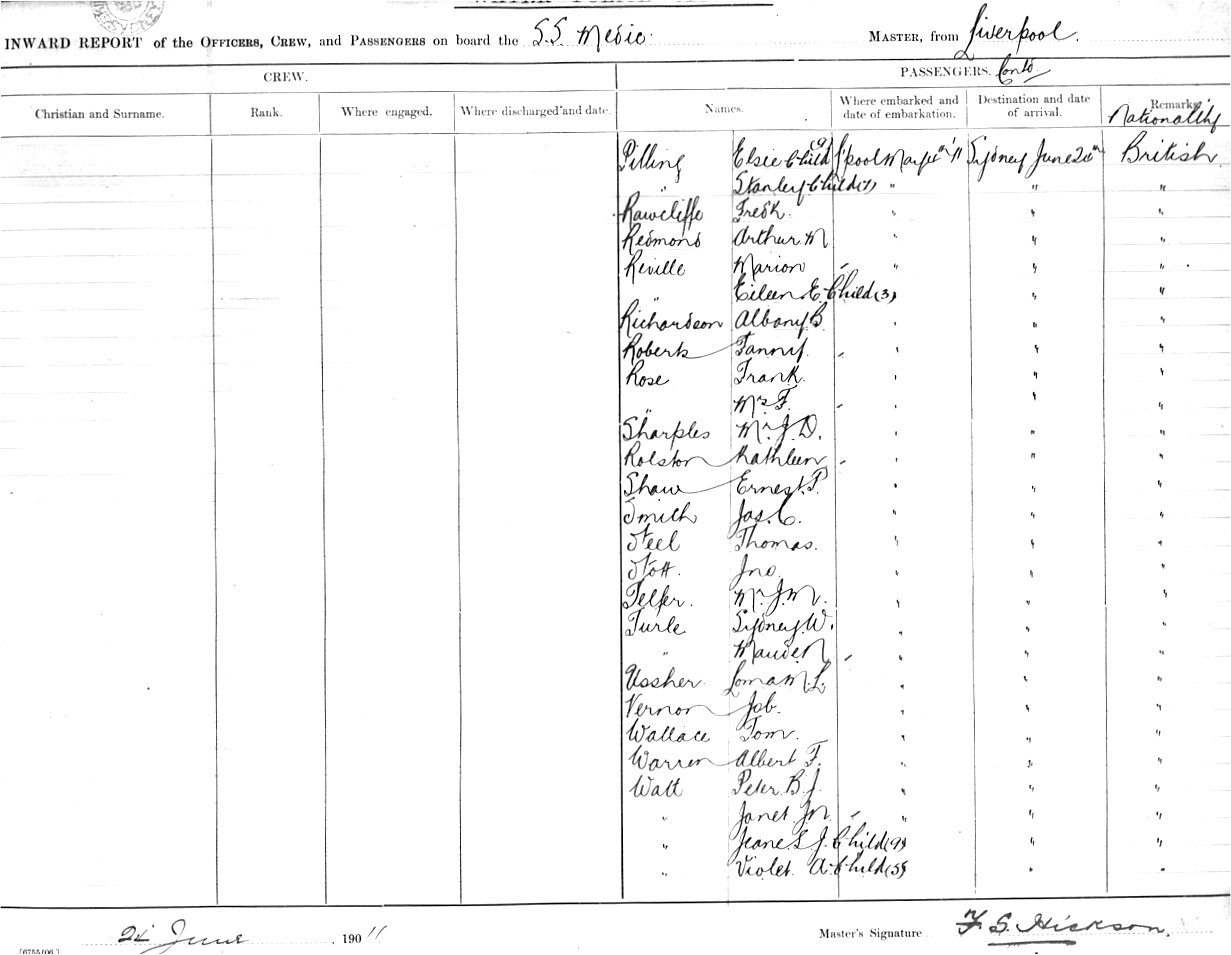 INWARD REPORT of the OFFICERS, CREW, and PASSENGERS on board the S.S. Medic MASTER, from Liverpool.
CREW. PASSENGERS. Contd
Christian and Surname. Rank. Where engaged. Where discharged and date. Names. Where embarked and date of embarkation. Destination and date of arrival. Remarks Nationality
Pilling Elsie Child (9) L'pool May '11 Sydney June British
" Stanley Child (7) " " "
Rawcliffe Fredk. " " "
Redmond Arthur M " " "
Reville Marion " " "
" Eileen E. Child (3) " "
Richardson Albany B. " " "
Roberts Fanny. " " "
Rose Frank. " " "
" Mrs F. " " "
Sharples Mr J. D. " " "
Rolston Kathleen " " "
Shaw Ernest P. " " "
Smith Jas. C. " " "
Steel Thomas. " " "
Stott. Jno. " " "
Telfer. Mr J. M. " " "
Turle Sydney W. " " "
" Maude " " "
Ussher. L. " " "
Vernon Job. " " "
Wallace Tom. " " "
Warren Albert F. " " "
Watt Peter B. J. " " "
" Janet " " "
" Jeane S. J. Child (9) " "
" Violet. A. Child (5) " "
June 1911 Master's Signature F S. Hickson.